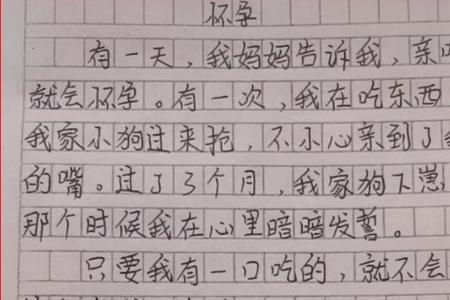 怀孕
有一天，我妈妈告诉我，亲
就会怀孕。有一次，我在吃东西
我家小狗过来抢，不小心亲到了
的嘴。过了3个月，我家狗下崽
那个时候我在心里暗暗发誓。
只要我有一口吃的，就不会